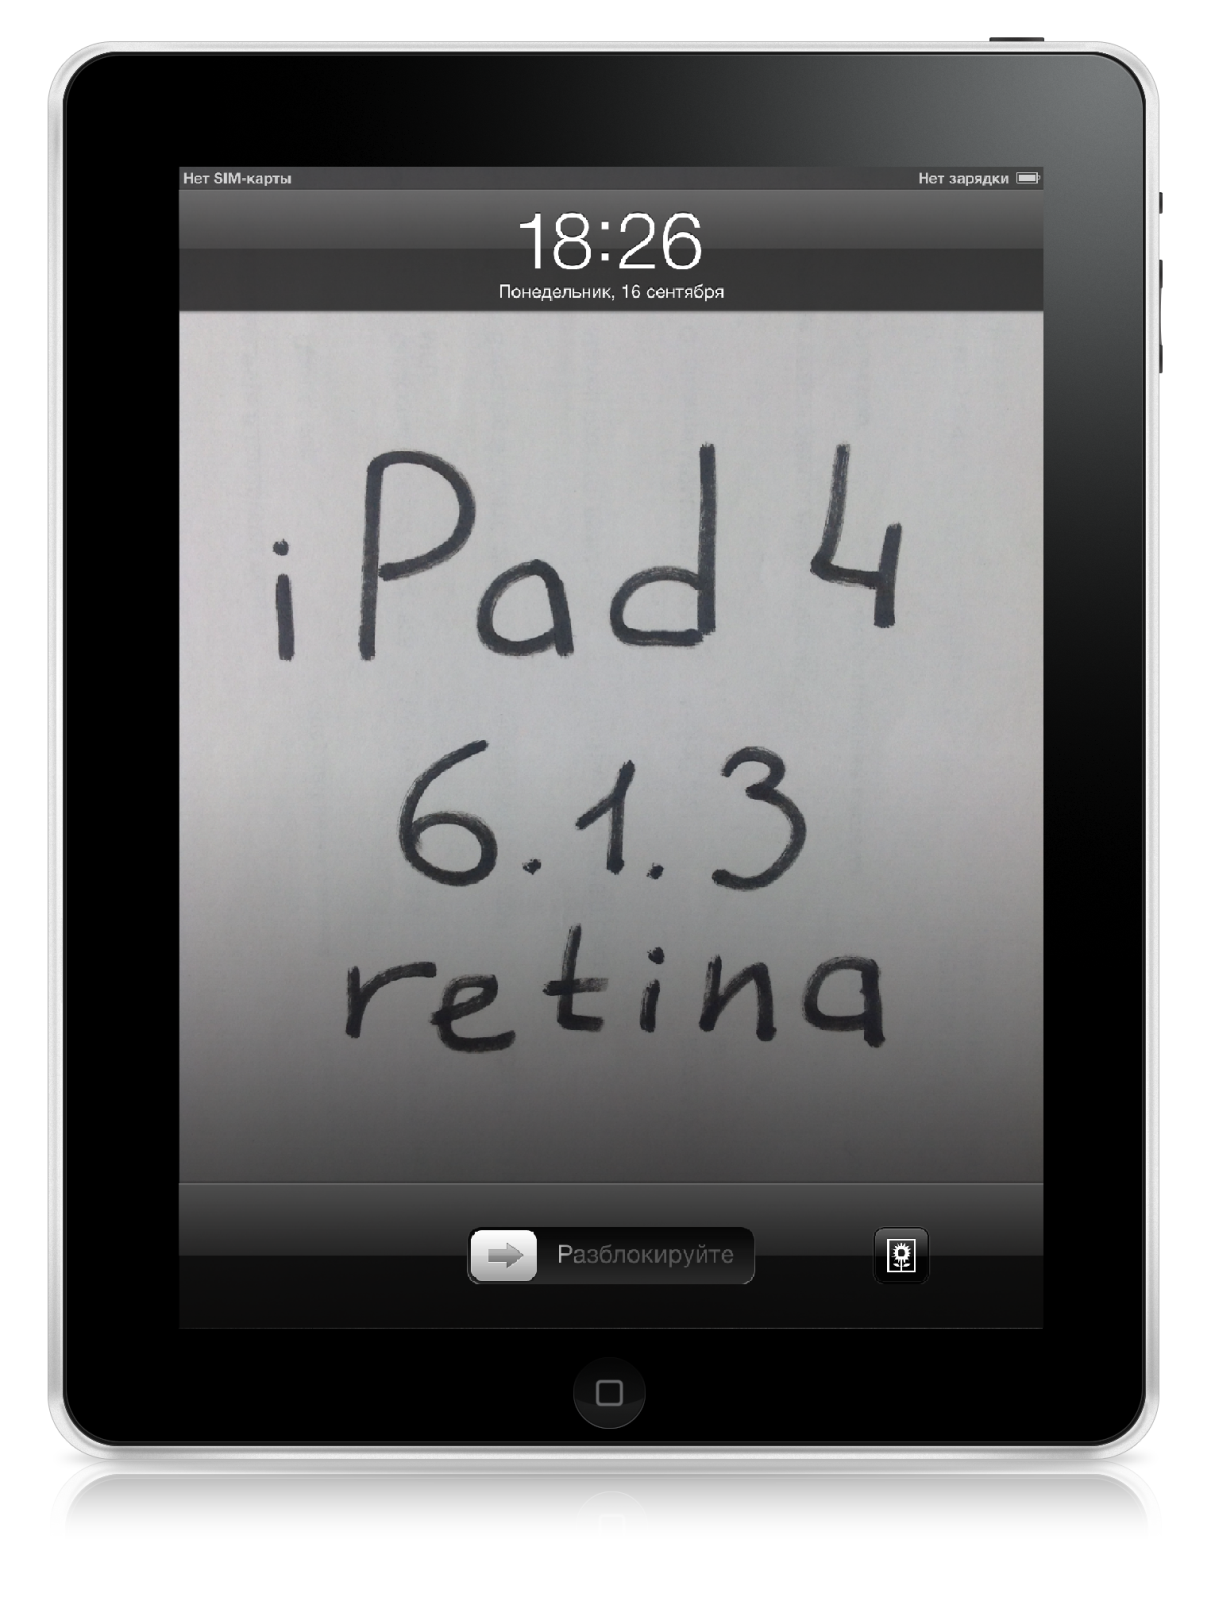 Нет SIM-карты Нет зарядки
18:26
Понедельник, 16 сентября
iPad 4
6.1.3
retina
Разблокируйте